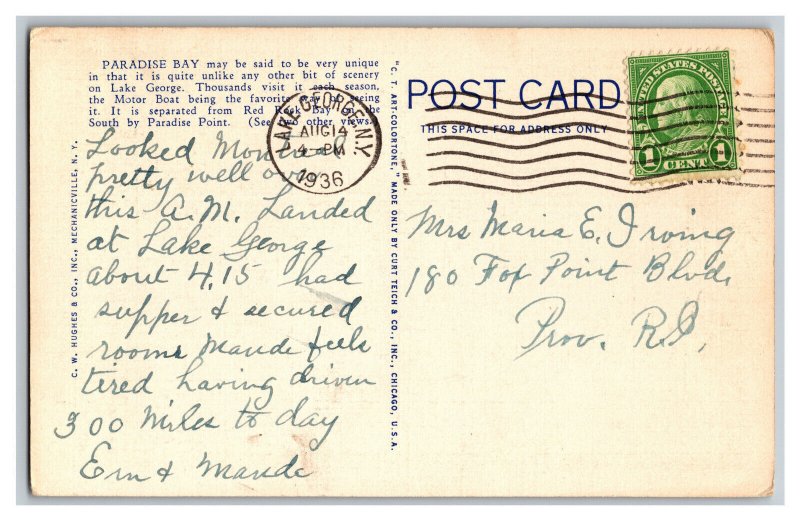 PARADISE BAY may be said to be very unique
in that it is quite unlike any other bit of scenery
on Lake George. Thousands visit it each season,
the Motor Boat being the favorite way of seeing
it. It is separated from Red Rock Bay on the
South by Paradise Point. (See two other views.)
Looked
pretty well over
this A.M. Landed
at Lake George
about 4.15 had
supper & secured
rooms Maude feels
tired having driven
300 miles to day
Ern & Maude
C. W. HUGHES & CO., INC., MECHANICVILLE, N. Y.
"C. T. ART-COLORTONE," MADE ONLY BY CURT TEICH & CO., INC., CHICAGO, U.S.A.
LAKE GEORGE, N.Y.
AUG 14
4-PM
1936
POST CARD
THIS SPACE FOR ADDRESS ONLY
UNITED STATES POSTAGE
1 CENT 1
Mrs Maria E. Irving
180 Fox Point Blvd.
Prov. R.I.